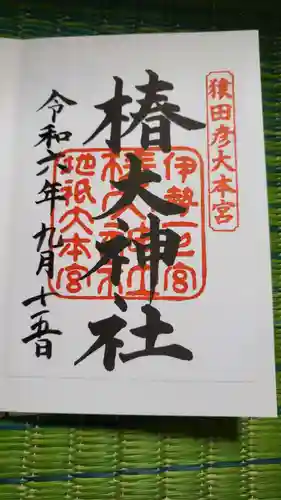 猿田彦大本宮
椿大神社
伊勢一の宮
椿大神社
地祇大本宮
令和六年九月十五日